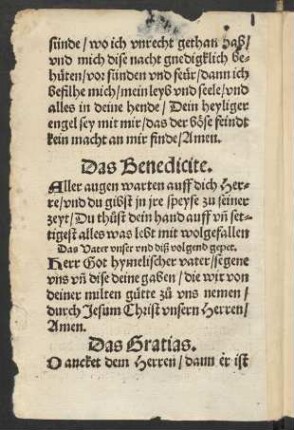 sünde/ wo ich vnrecht gethan hab/
vnd mich dise nacht gnedigklich be-
hüten/ vor sünden vnd feür/ dann ich
befilhe mich/ mein leyb vnd seele/ vnd
alles in deine hende/ Dein heyliger
engel sey mit mir/ das der böse feindt
kein macht an mir finde/ Amen.
Das Benedicite.
Aller augen warten auff dich Her-
re/ vnd du gibst jn jre speyse zu seiner
zeyt/ Du thůst dein hand auff vñ set-
tigest alles was lebt mit wolgefallen
Das Vater vnser vnd diß volgend gepet.
Herr Got hymelischer vater/ segene
vns vñ dise deine gaben/ die wir von
deiner milten gütte zů vns nemen/
durch Jesum Christ vnsern Herren/
Amen.
Das Gratias.
Dancket dem Herren/ dann er ist